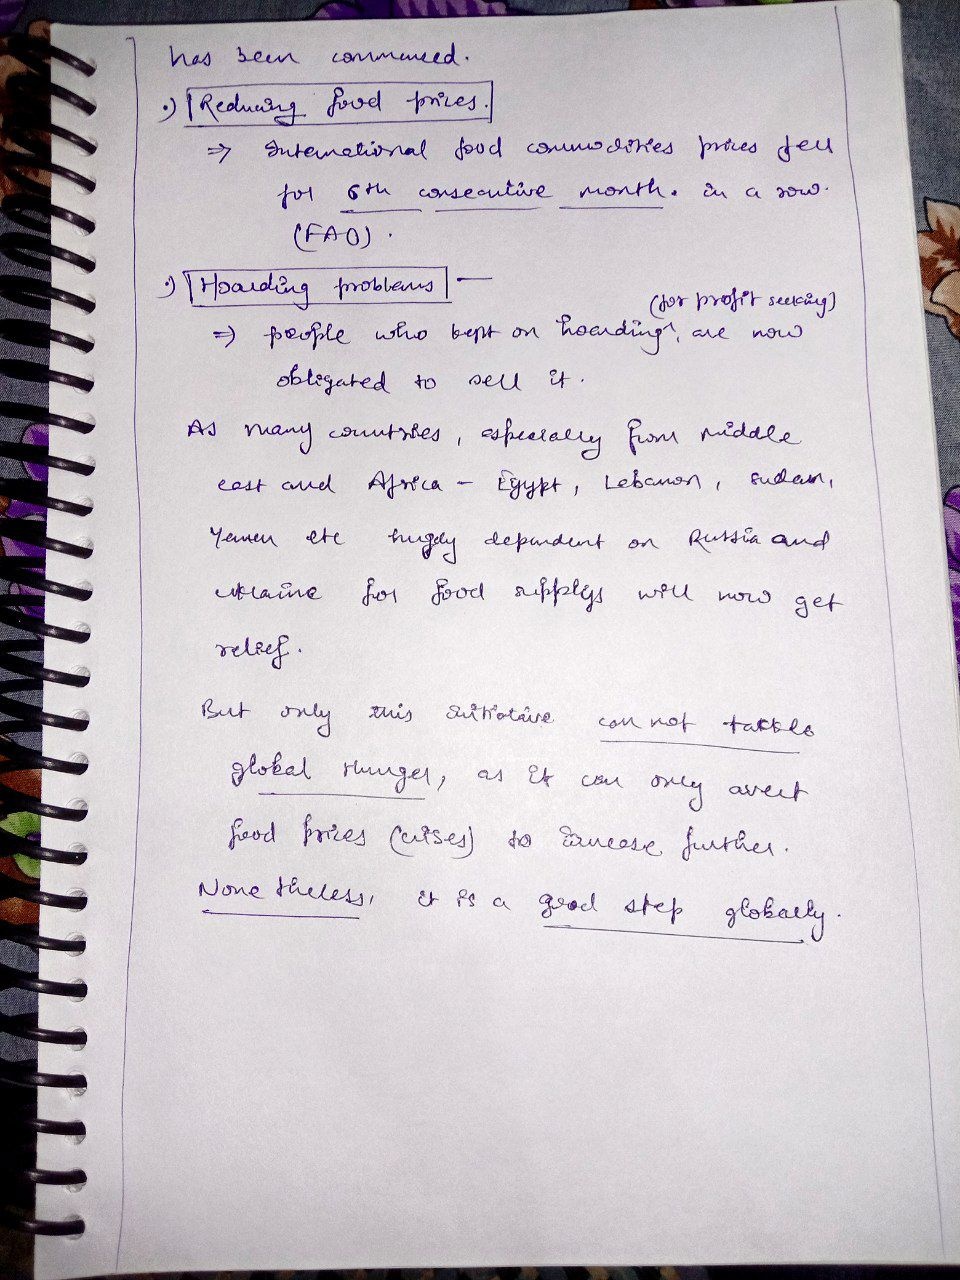 has been commenced.
•) Reducing food prices.
⇒ International food commodities prices fell
for 6th consecutive month. in a row.
(FAO).
•) Hoarding problems —
(for profit seeking)
⇒ people who kept on hoarding, are now
obligated to sell it.
As many countries, especially from middle
east and Africa - Egypt, Lebanon, Sudan,
Yemen etc hugely dependent on Russia and
Ukraine for food supplys will now get
relief.
But only this initiative can not tackle
global Hunger, as it can only avert
food prices (crises) to increase further.
None theless, it is a good step globally.